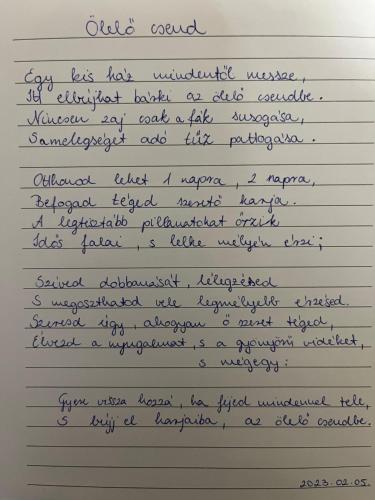 Ölelő csend
Egy kis ház mindentől messze,
Itt elbújhat bárki az ölelő csendbe.
Nincsen zaj csak a fák susogása,
S a melegséget adó tűz pattogása.
Otthonod lehet 1 napra, 2 napra,
Befogad téged szerető karja.
A legtisztább pillanatokat őrzik
Idős falai, s lelke mélyén érzi;
Szíved dobbanását, lélegzésed
S megoszthatod vele legmélyebb érzésed.
Szeresd úgy, ahogyan ő szeret téged,
Élvezd a nyugalmat, s a gyönyörű vidéket,
s mégegy:
Gyere vissza hozzá, ha fejed mindennel tele,
S bújj el karjaiba, az ölelő csendbe.
2023.02.05.